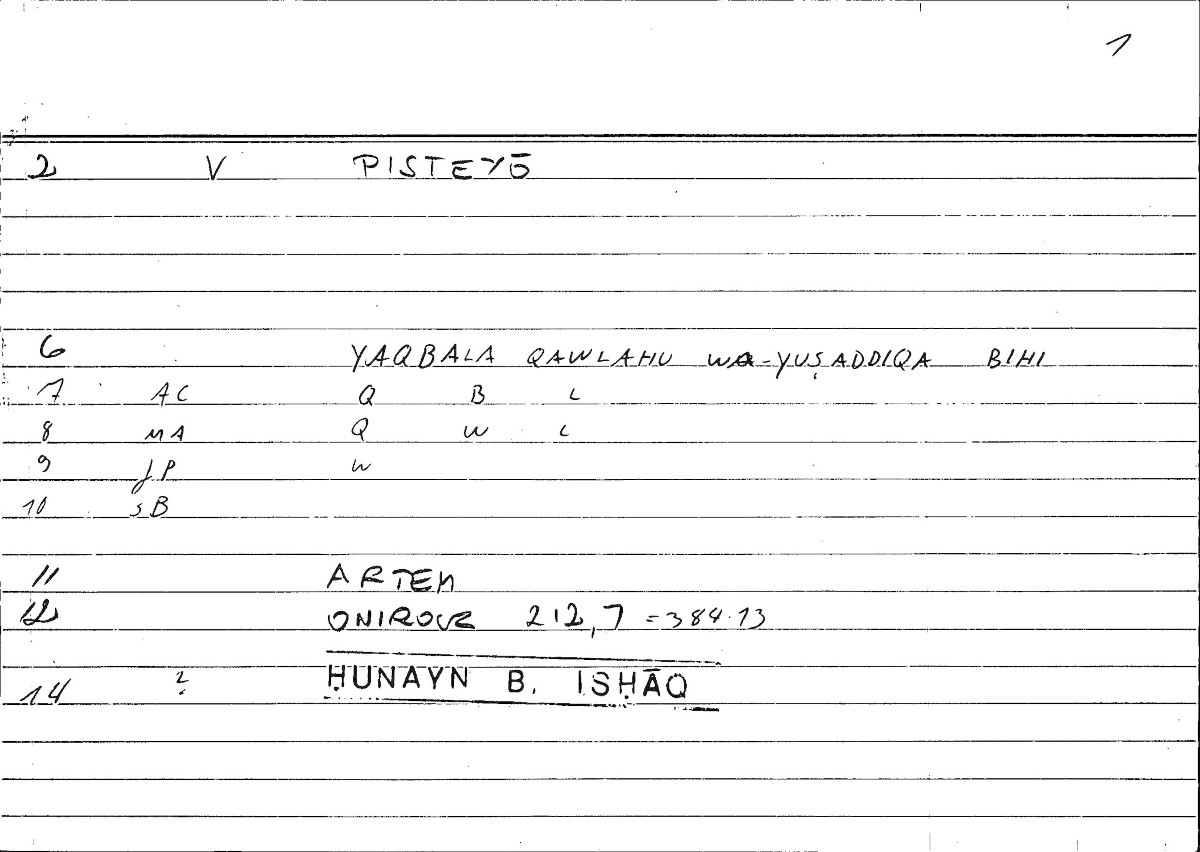 1
2 V PISTEYŌ
6 YAQBALA QAWLAHU WA-YUṢADDIQA BIHI
7 AC Q B L
8 MA Q W L
9 JP W
10 SB
11 ARTEM
12 ONIROCR 212,7 = 384.13
14 2. ḤUNAYN B. ISḤĀQ